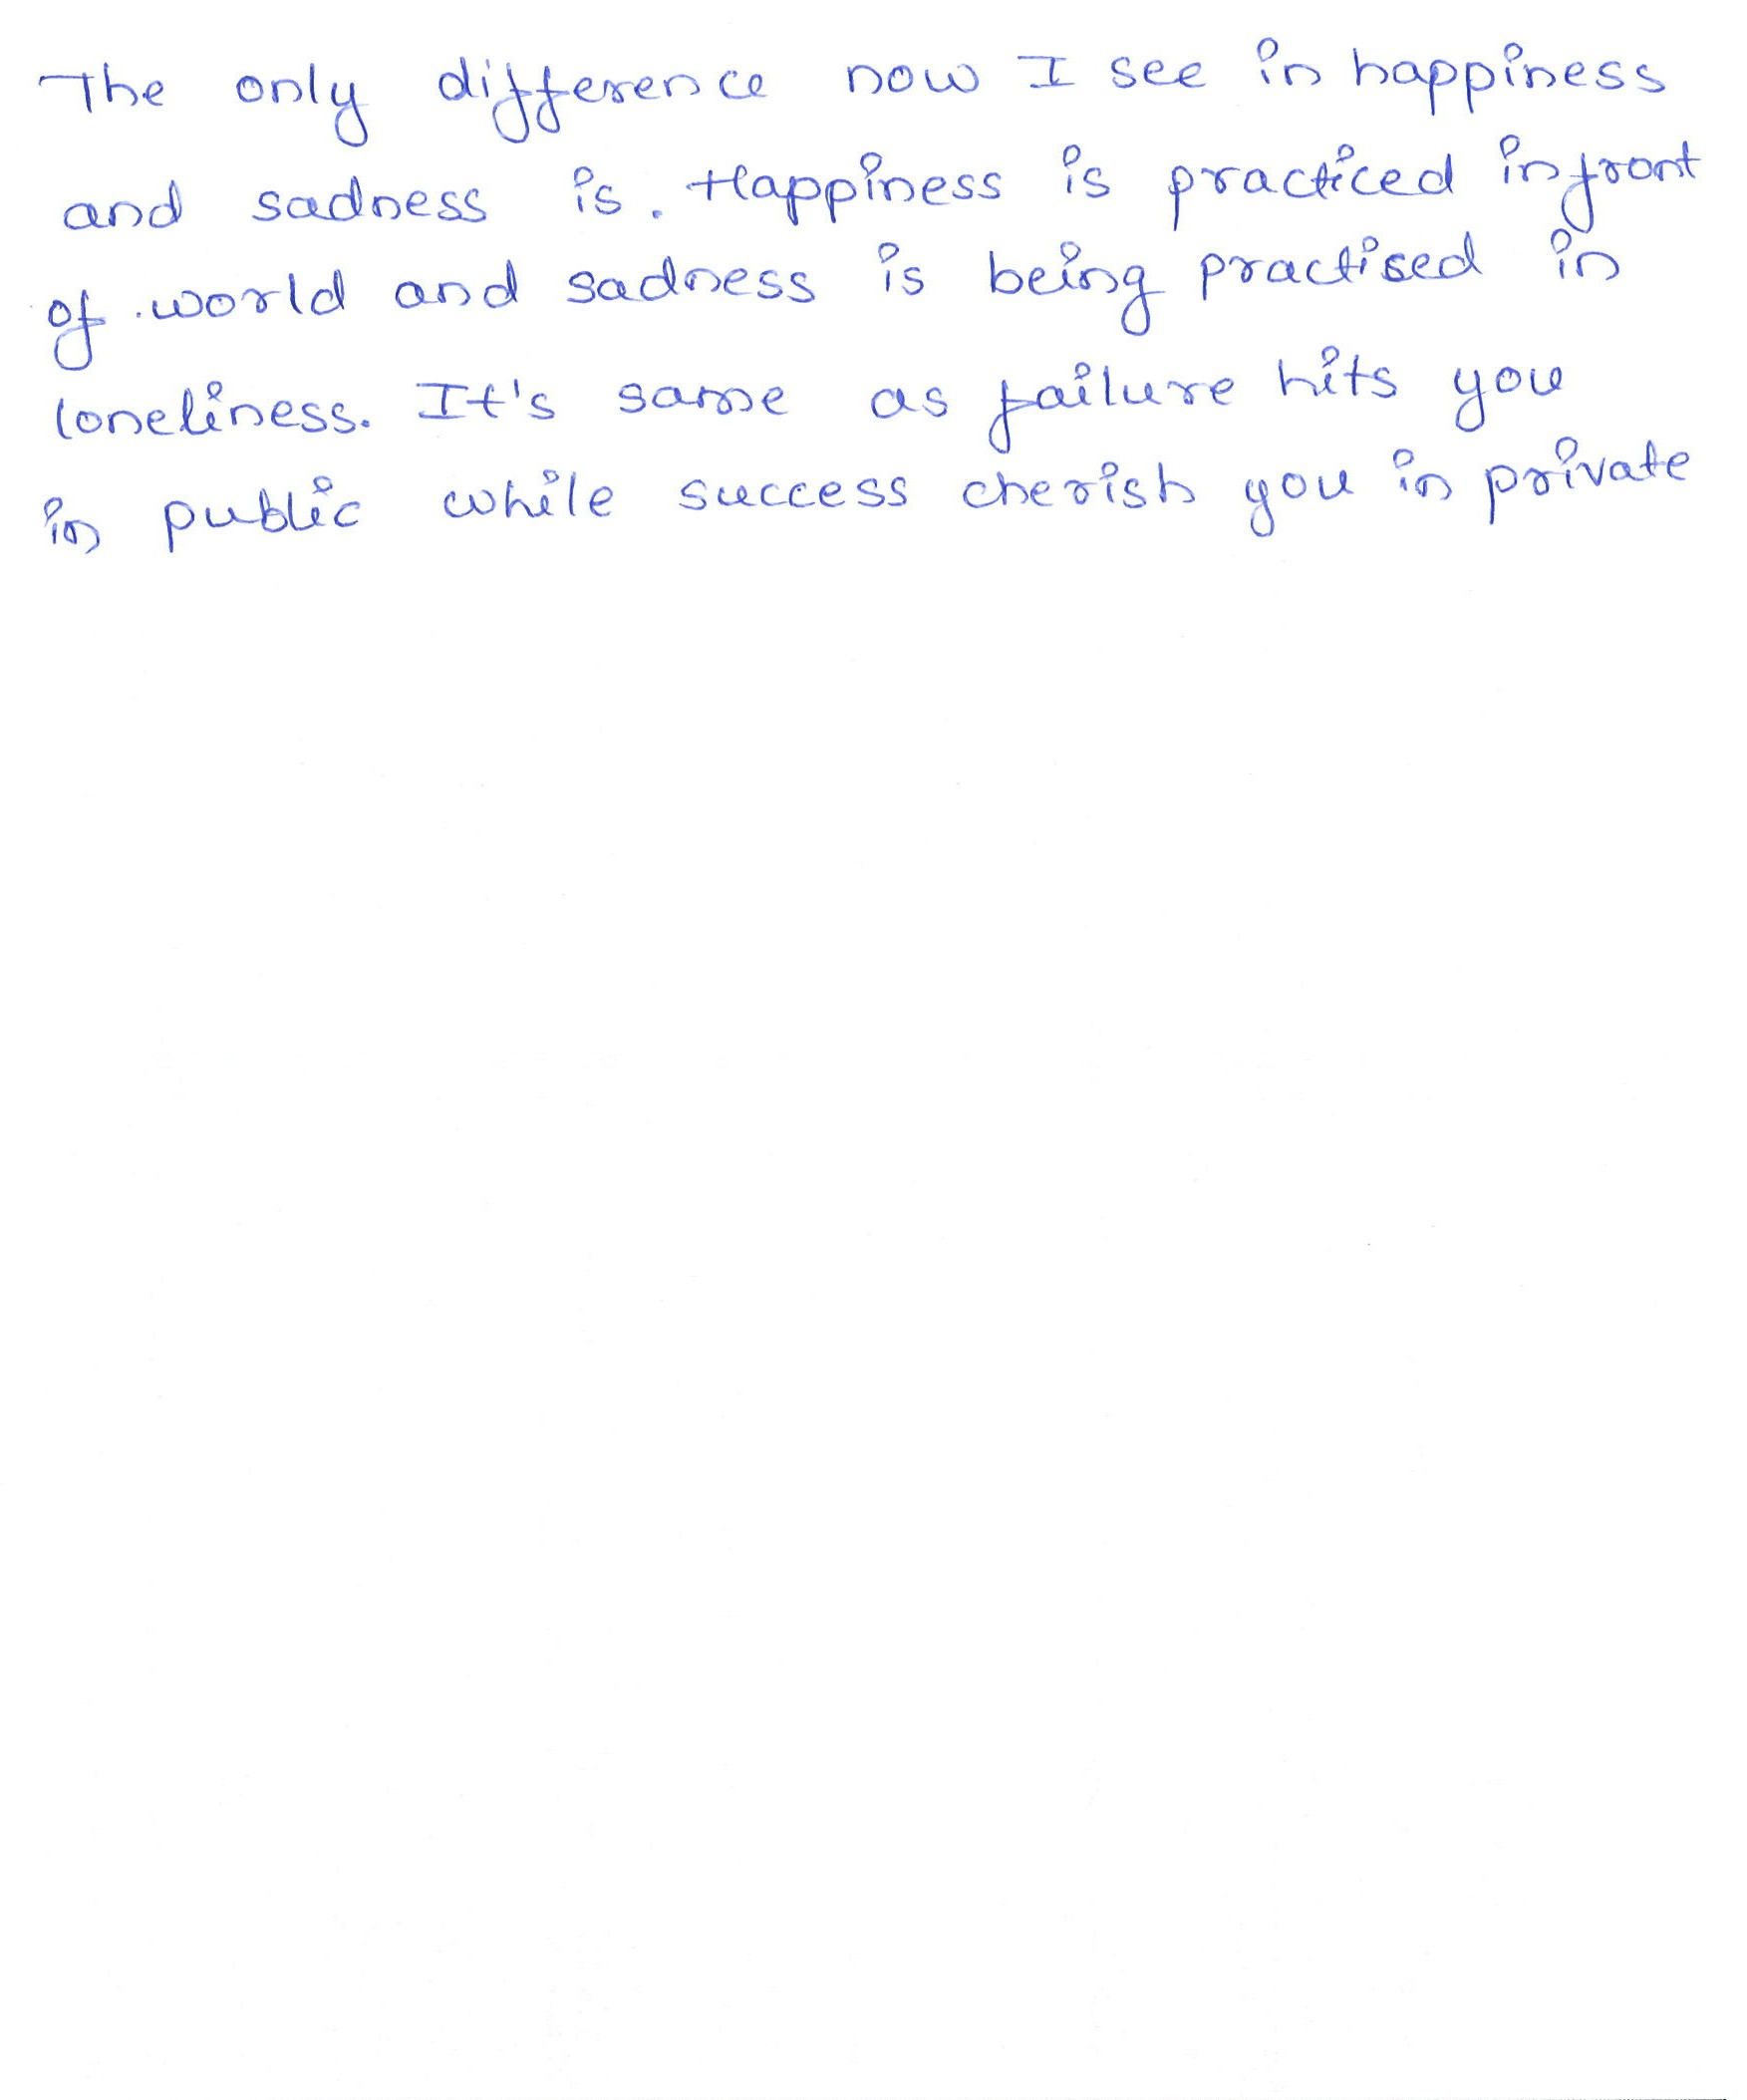 The only difference now I see in happiness
and sadness is. Happiness is practiced infront
of world and sadness is being practised in
loneliness. It's same as failure hits you
in public while success cherish you in private